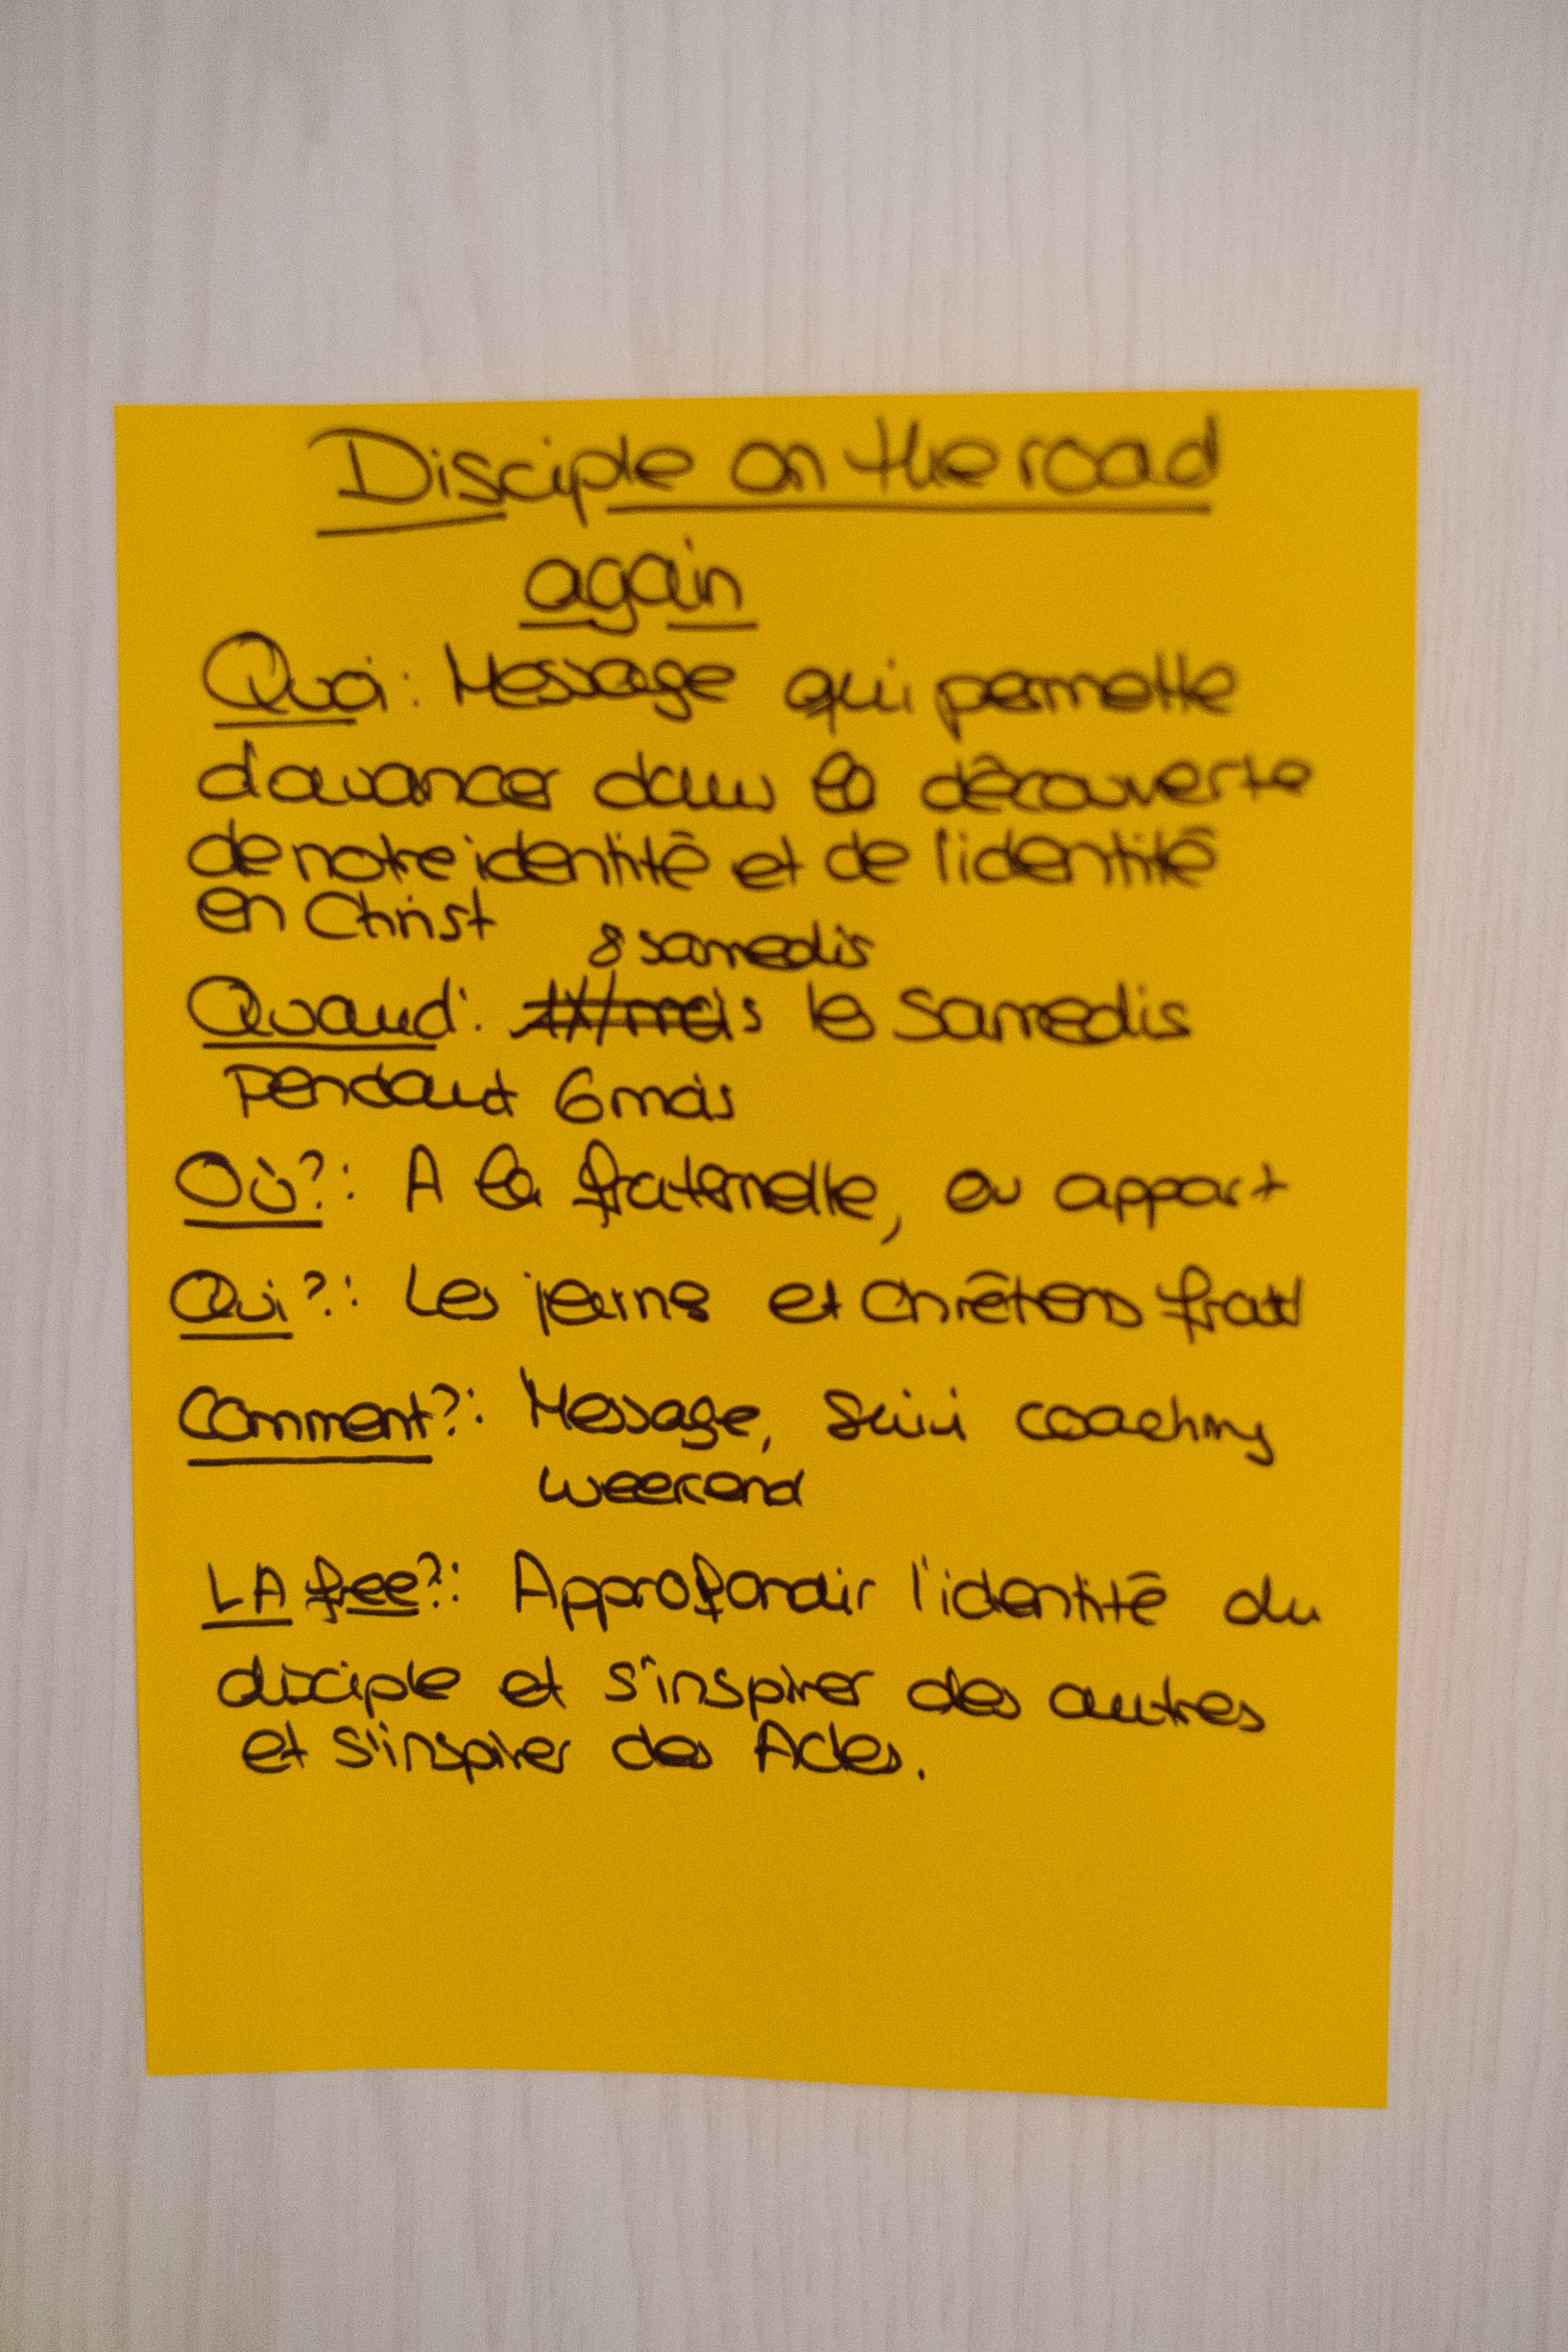 Disciple on the road
again
Quoi : Message qui permette
d'avancer dans la découverte
de notre identité et de l'identité
en Christ
8 samedis
Quand : les samedis
pendant 6 mois
Où ? : A la fraternelle, ou appart
Qui ? : Les jeunes et chrétiens
Comment ? : Message, suivi coaching
weekend
LA free ? : Approfondir l'identité du
disciple et s'inspirer des autres
et s'inspirer des Actes.